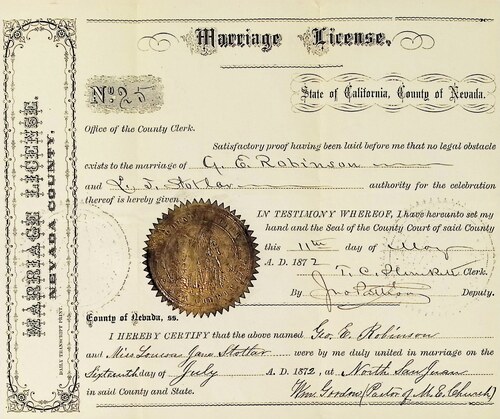 Marriage License,
No. 25
State of California, County of Nevada.
Office of the County Clerk.
Satisfactory proof having been laid before me that no legal obstacle
exists to the marriage of G. E. Robinson
and L. J. Stottar authority for the celebration
thereof is hereby given
IN TESTIMONY WHEREOF, I have hereunto set my
hand and the Seal of the County Court of said County
this 11th day of May
A. D. 1872
T. C. Plunkett Clerk.
By Jno Pattison Deputy.
County of Nevada, ss.
I HEREBY CERTIFY that the above named Geo, E. Robinson
and Miss Louisa Jane Stottar were by me duly united in marriage on the
Sixteenth day of July A. D. 1872, at North San Juan
in said County and State. Wm Gordon (Pastor of M. E. Church)
MARRIAGE LICENSE.
NEVADA COUNTY.
DAILY TRANSCRIPT PRINT.